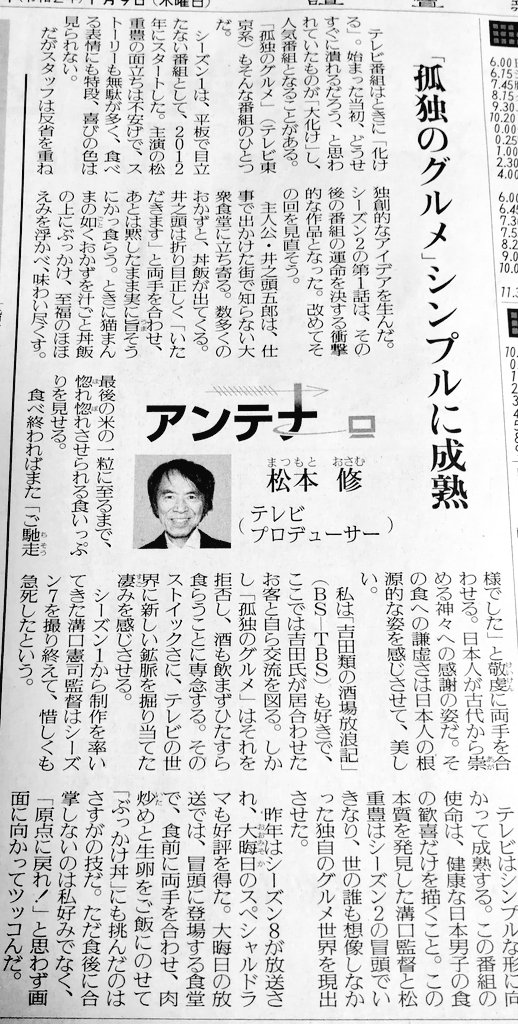 (木曜日)
「孤独のグルメ」シンプルに成熟
テレビ番組はときに「化け
る」。始まった当初、どうせ
すぐに潰れるだろう、と思わ
れていたものが「大化け」し、
人気番組となることがある。
「孤独のグルメ」(テレビ東
京系)もそんな番組のひとつ
だ。
シーズン1は、平板で目立
たない番組として、2012
年にスタートした。主演の松
重豊の面立ちは不安げで、ス
トーリーも無駄が多く、食べ
る表情にも特段、喜びの色は
見られない。
だがスタッフは反省を重ね
独創的なアイデアを生んだ。
シーズン2の第1話は、その
後の番組の運命を決する衝撃
的な作品となった。改めてそ
の回を見直そう。
主人公・井之頭五郎は、仕
事で出かけた街で知らない大
衆食堂に立ち寄る。数多くの
おかずと、丼飯が出てくる。
井之頭は折り目正しく「いた
だきます」と両手を合わせ、
あとは黙したまま実に旨そう
にかっ食らう。ときに猫まん
まの如くおかずを汁ごと丼飯
の上にぶっかけ、至福のほほ
えみを浮かべ、味わい尽くす。
アンテナ
松本 修
まつもと おさむ
(テレビ
プロデューサー)
最後の米の一粒に至るまで、
惚れ惚れさせられる食いっぷ
りを見せる。
食べ終わればまた「ご馳走
様でした」と敬虔に両手を合
わせる。日本人が古代から崇
める神々への感謝の姿だ。そ
の食への謙虚さは日本人の根
源的な姿を感じさせて、美し
い。
私は「吉田類の酒場放浪記」
(BS-TBS)も好きで、
ここでは吉田氏が居合わせた
お客と自ら交流を図る。しか
し「孤独のグルメ」はそれを
拒否し、酒も飲まずひたすら
食らうことに専念する。その
ストイックさに、テレビの世
界に新しい鉱脈を掘り当てた
凄みを感じさせる。
シーズン1から制作を率い
てきた溝口憲司監督はシーズ
ン7を撮り終えて、惜しくも
急死したという。
テレビはシンプルな形に向
かって成熟する。この番組の
使命は、健康な日本男子の食
の歓喜だけを描くこと。この
本質を発見した溝口監督と松
重豊はシーズン2の冒頭でい
きなり、世の誰も想像しなか
った独自のグルメ世界を現出
させた。
昨年はシーズン8が放送さ
れ、大晦日のスペシャルドラ
マも好評を得た。大晦日の放
送では、冒頭に登場する食堂
で、食前に両手を合わせ、肉
炒めと生卵をご飯にのせて
「ぶっかけ丼」にも挑んだのは
さすがの技だ。ただ食後に合
掌しないのは私好みでなく、
「原点に戻れ!」と思わず画
面に向かってツッコんだ。